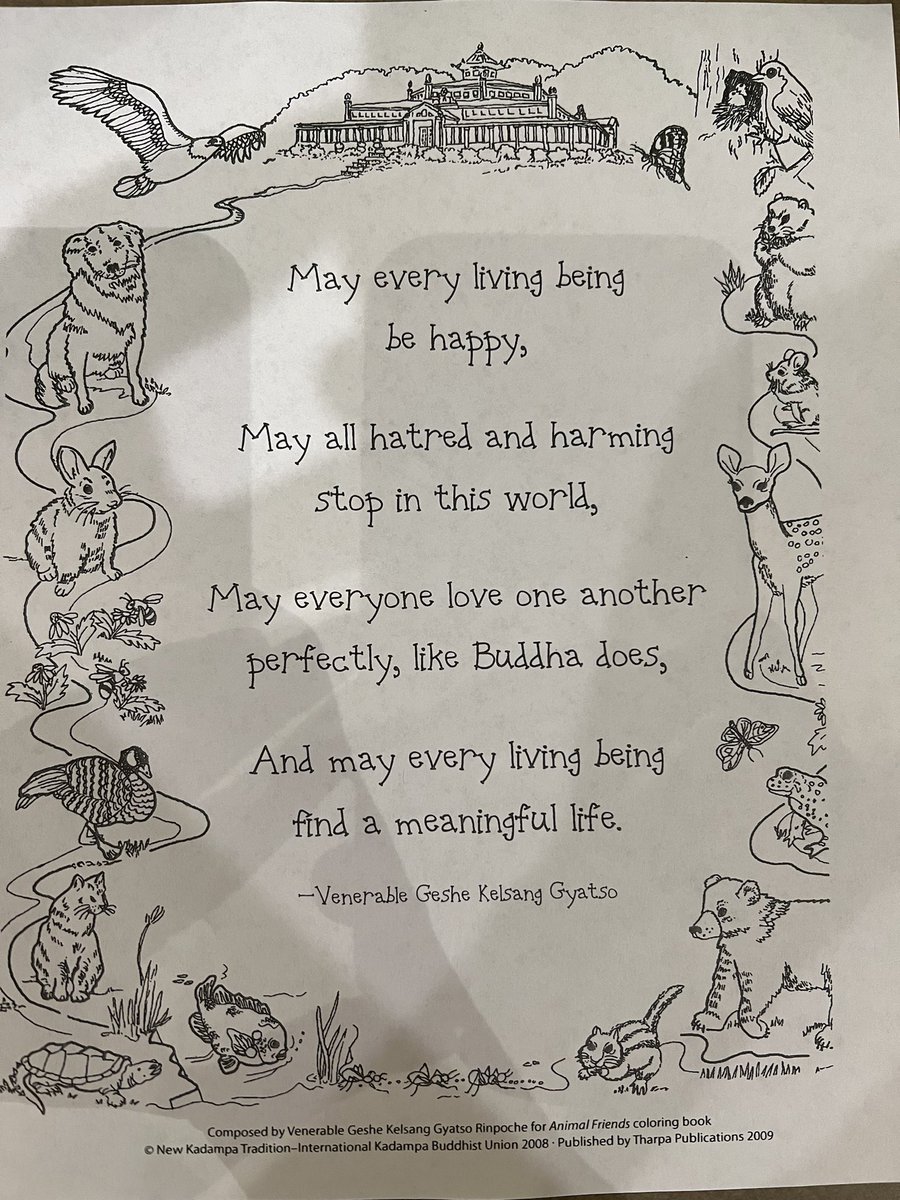 May every living being
be happy,
May all hatred and harming
stop in this world,
May everyone love one another
perfectly, like Buddha does,
And may every living being
find a meaningful life.
—Venerable Geshe Kelsang Gyatso
Composed by Venerable Geshe Kelsang Gyatso Rinpoche for Animal Friends coloring book
© New Kadampa Tradition–International Kadampa Buddhist Union 2008 · Published by Tharpa Publications 2009